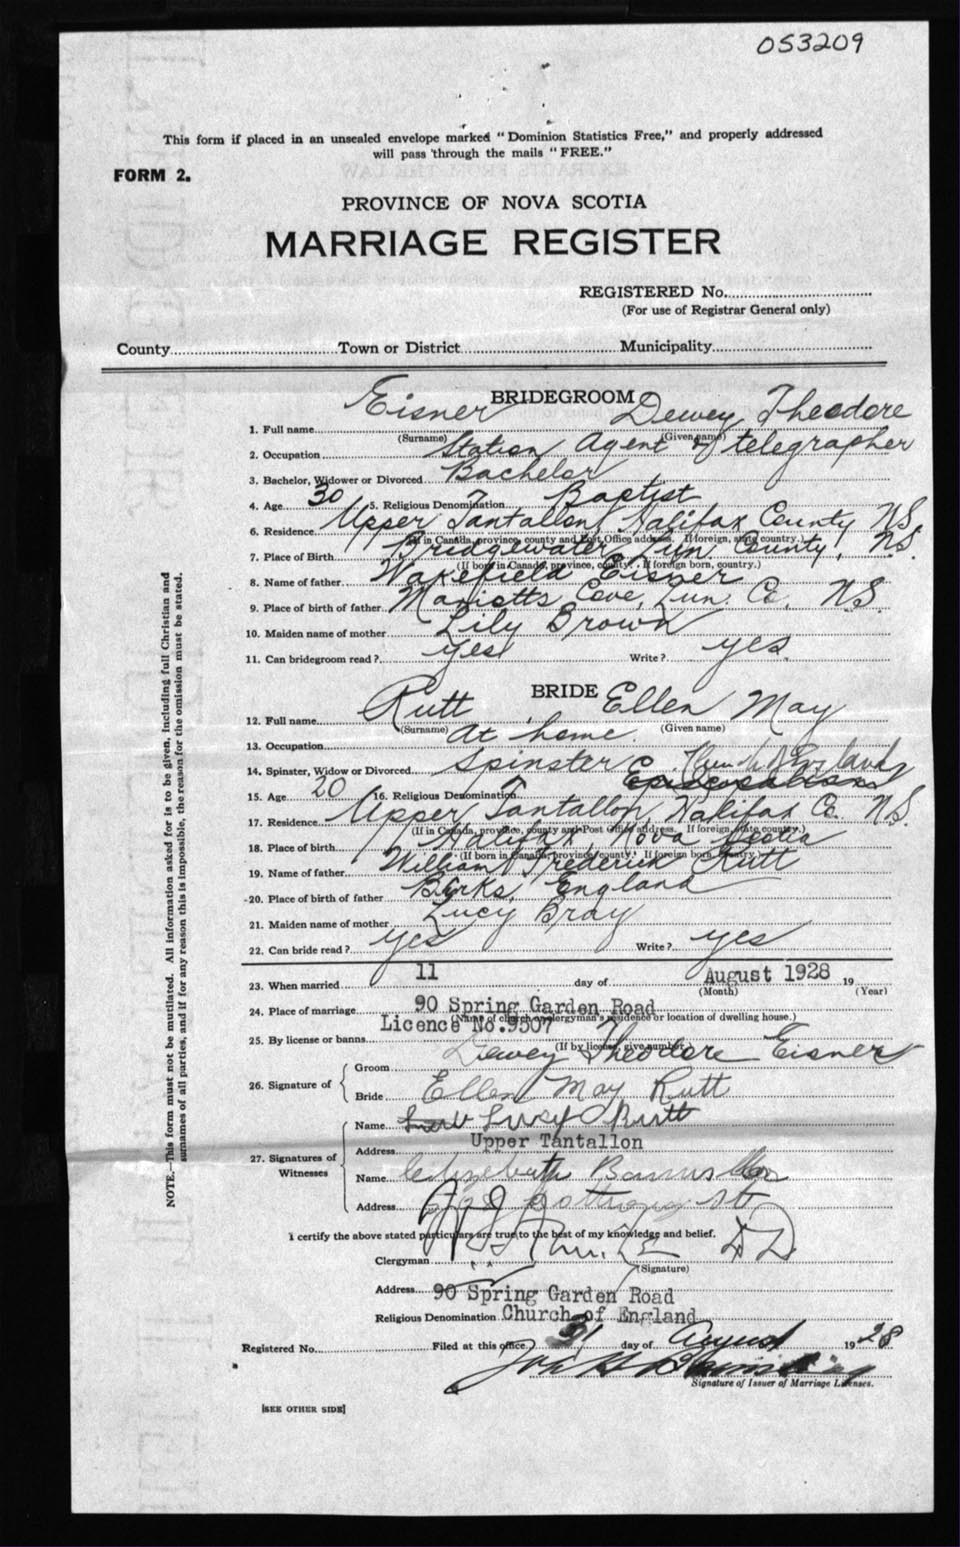 053209
This form if placed in an unsealed envelope marked "Dominion Statistics Free," and properly addressed
will pass through the mails "FREE."
FORM 2.
PROVINCE OF NOVA SCOTIA
MARRIAGE REGISTER
REGISTERED No.
(For use of Registrar General only)
County Town or District Municipality
BRIDEGROOM
1. Full name Eisner Dewey Theodore
(Surname) (Given name)
2. Occupation Station Agent & telegrapher
3. Bachelor, Widower or Divorced Bachelor
4. Age 30 5. Religious Denomination Baptist
6. Residence Upper Tantallon, Halifax County, N.S.
(If in Canada, province, county and Post Office address. If foreign, state country.)
7. Place of Birth Bridgewater, Lun. County, N.S.
(If born in Canada, province, county. If foreign born, country.)
8. Name of father Wakefield Eisner
9. Place of birth of father Mariotts Cove, Lun. Co. N.S.
10. Maiden name of mother Lily Brown
11. Can bridegroom read? yes Write? yes
BRIDE
12. Full name Rutt, Ellen May
(Surname) (Given name)
13. Occupation At home.
14. Spinster, Widow or Divorced Spinster
15. Age 20 16. Religious Denomination Episcopalian
17. Residence Upper Tantallon, Halifax Co. N.S.
(If in Canada, province, county and Post Office address. If foreign, state country.)
18. Place of birth Halifax, Nova Scotia
(If born in Canada, province, county. If foreign born, country.)
19. Name of father William Frederick Rutt
20. Place of birth of father Birks, England
21. Maiden name of mother Lucy Bray
22. Can bride read? yes Write? yes
23. When married 11 day of August 1928 19
(Month) (Year)
24. Place of marriage 90 Spring Garden Road
(Name of church or clergyman's residence or location of dwelling house.)
25. By license or banns Licence No. 9507
(If by license, give number.)
26. Signature of
Groom Dewey Theodore Eisner
Bride Ellen May Rutt
27. Signatures of Witnesses
Name Lucy Rutt
Address Upper Tantallon
Name Elizabeth
Address St
I certify the above stated particulars are true to the best of my knowledge and belief.
Clergyman D D
(Signature)
Address 90 Spring Garden Road
Religious Denomination Church of England
Registered No. Filed at this office 31 day of August 1928
Signature of Issuer of Marriage Licenses.
[SEE OTHER SIDE]
NOTE.—This form must not be mutilated. All information asked for is to be given, including full Christian and
surnames of all parties, and if for any reason this is impossible, the reason for the omission must be stated.